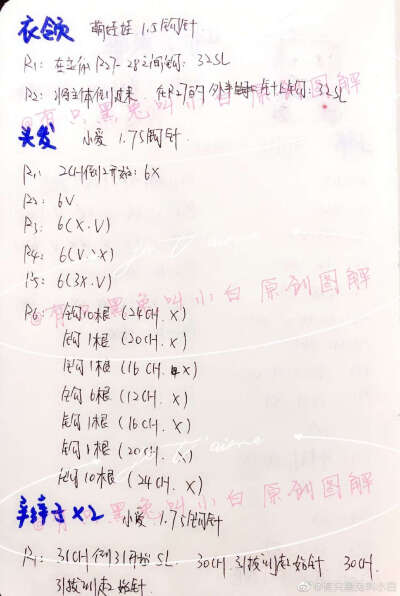 衣领 萌娃娃 1.5钩针
R1: 在主体R27-28之间钩: 32SL
R2: 将主体倒过来. 在R27的外半针上钩: 32SL
@有只黑兔叫小白 原创图解
头发 小爱 1.75钩针.
R1: 2CH倒2开始: 6X
R2: 6V
R3: 6(X.V)
R4: 6(V..X)
R5: 6(3X.V)
@有只黑兔叫小白 原创图解
R6: 钩10根(24CH. X)
钩1根(20CH. X)
钩1根(16CH. X)
钩6根(12CH. X)
钩1根(16CH. X)
钩1根(20CH. X)
钩10根(24CH. X)
@有只黑兔叫小白 原创图解
辫子X2 小爱 1.75钩针
R1: 31CH倒31开始SL. 30CH. 引拔到起始针 30CH.
引拔到起始针.